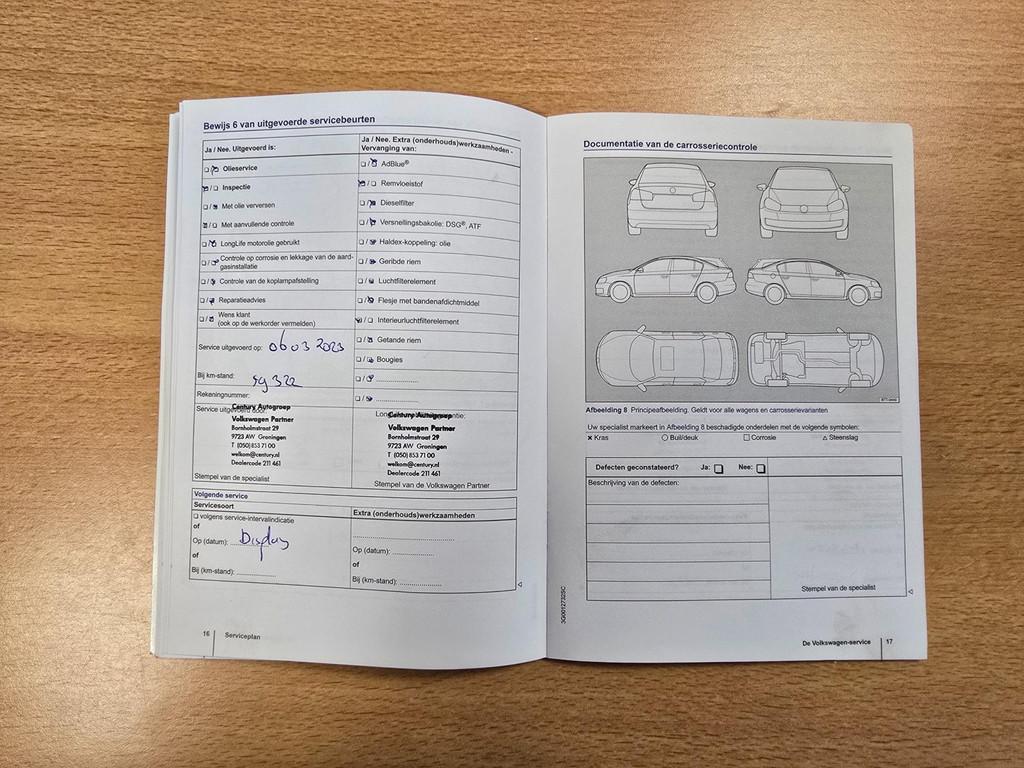 Bewijs 6 van uitgevoerde servicebeurten
Ja / Nee. Uitgevoerd is:
Olieservice
Inspectie
Met olie verversen
Met aanvullende controle
LongLife motorolie gebruikt
Controle op corrosie en lekkage van de aard-
gasinstallatie
Controle van de koplampafstelling
Reparatieadvies
Wens klant
(ook op de werkorder vermelden)
Service uitgevoerd op: 06 03 2023
Bij km-stand:
Rekeningnummer:
Service uitgevoerd door:
Century Autogroep
Volkswagen Partner
Bornholmstraat 29
9723 AW Groningen
T (050) 853 71 00
welkom@century.nl
Dealercode 211 461
Stempel van de specialist
Ja / Nee. Extra (onderhouds)werkzaamheden -
Vervanging van:
AdBlue®
Remvloeistof
Dieselfilter
Versnellingsbakolie: DSG®, ATF
Haldex-koppeling: olie
Geribde riem
Luchtfilterelement
Flesje met bandenafdichtmiddel
Interieurluchtfilterelement
Getande riem
Bougies
Century Autogroep
Volkswagen Partner
Bornholmstraat 29
9723 AW Groningen
T (050) 853 71 00
welkom@century.nl
Dealercode 211 461
Stempel van de Volkswagen Partner
Volgende service
Servicesoort
volgens service-intervalindicatie
of
Op (datum): Display
of
Bij (km-stand):
Extra (onderhouds)werkzaamheden
Op (datum):
of
Bij (km-stand):
16 Serviceplan
Documentatie van de carrosseriecontrole
Afbeelding 8 Principeafbeelding. Geldt voor alle wagens en carrosserievarianten
Uw specialist markeert in Afbeelding 8 beschadigde onderdelen met de volgende symbolen:
× Kras ○ Buil/deuk □ Corrosie △ Steenslag
Defecten geconstateerd? Ja: □ Nee: □
Beschrijving van de defecten:
Stempel van de specialist
3G0012732SC
De Volkswagen-service 17